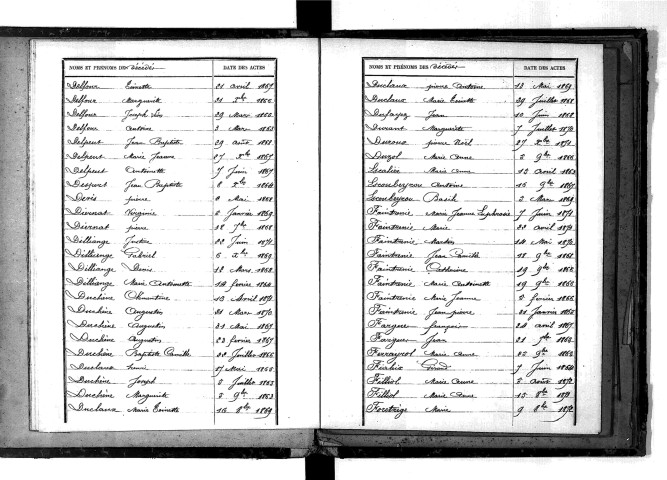 NOMS ET PRÉNOMS DES décédés DATE DES ACTES
Delfour Toinette 21 avril 1867
Delfour Marguerite 31 Xbre 1866
Delfour Joseph 29 Mars
Delfour Antoine 3 Mars 1863
Delpeut Jean Baptiste 29 août 1868
Delpeut Marie Jeanne 27 Xbre 1867
Delpeut Antoinette 7 Juin 1867
Desport Jean Baptiste 8 Xbre
Devès pierre 8 Mai 1868
Diernat Virginie 2 Janvier 1869
Diernat pierre 18 7bre 1868
Dilliange Justine 22 Juin 1871
Dilliange Gabriel 6 Xbre 1869
Dilliange Denis 12 Mars 1862
Dilliange Marie Antoinette 14 février
Duchêne Clémentine 10 Avril 1871
Duchêne Augustin 31 Mars 1870
Duchêne Augustin 21 Mai 1867
Duchêne Augustin 23 février 1867
Duchêne Baptiste Camille 20 Juillet 1866
Duclaux henri 17 Mai 1866
Duchêne Joseph 2 Juillet 1863
Duchêne Marguerite 3 9bre 1863
Duclaux Marie Toinette 16 8bre 1869
NOMS ET PRÉNOMS DES décédés DATE DES ACTES
Duclaux pierre Antoine 13 Mai 1869
Duclaux Marie Toinette 29 Juillet 1868
Dufayez Jean 10 Juin 1868
Durant Marguerite 7 Juillet 1872
Duroux pierre Noël 27 Xbre 1871
Duzol Marie Anne 3 9bre 1866
Marie Anne 13 avril 1863
Antoine 16 9bre 1867
Basile 2 Mars 1869
Faintrenie Marie Jeanne Euphrasie 7 Juin 1872
Faintrenie Marie 20 avril 1872
Faintrenie Martin 14 Mai 1872
Faintrenie Jean Camille 18 9bre 1868
Faintrenie Catherine 19 9bre
Faintrenie Marie Antoinette 19 9bre
Faintrenie Marie Jeanne 2 février 1866
Faintrenie Jean pierre 21 Janvier
Fargues françois 24 avril 1867
Fargues Jean 21 7bre
Ferrayrol Marie Anne 22 9bre
7 Juin
Filliol Marie Anne 2 août 1872
Filliol Marie Anne 15 8bre 1871
Marie 9 8bre 1872